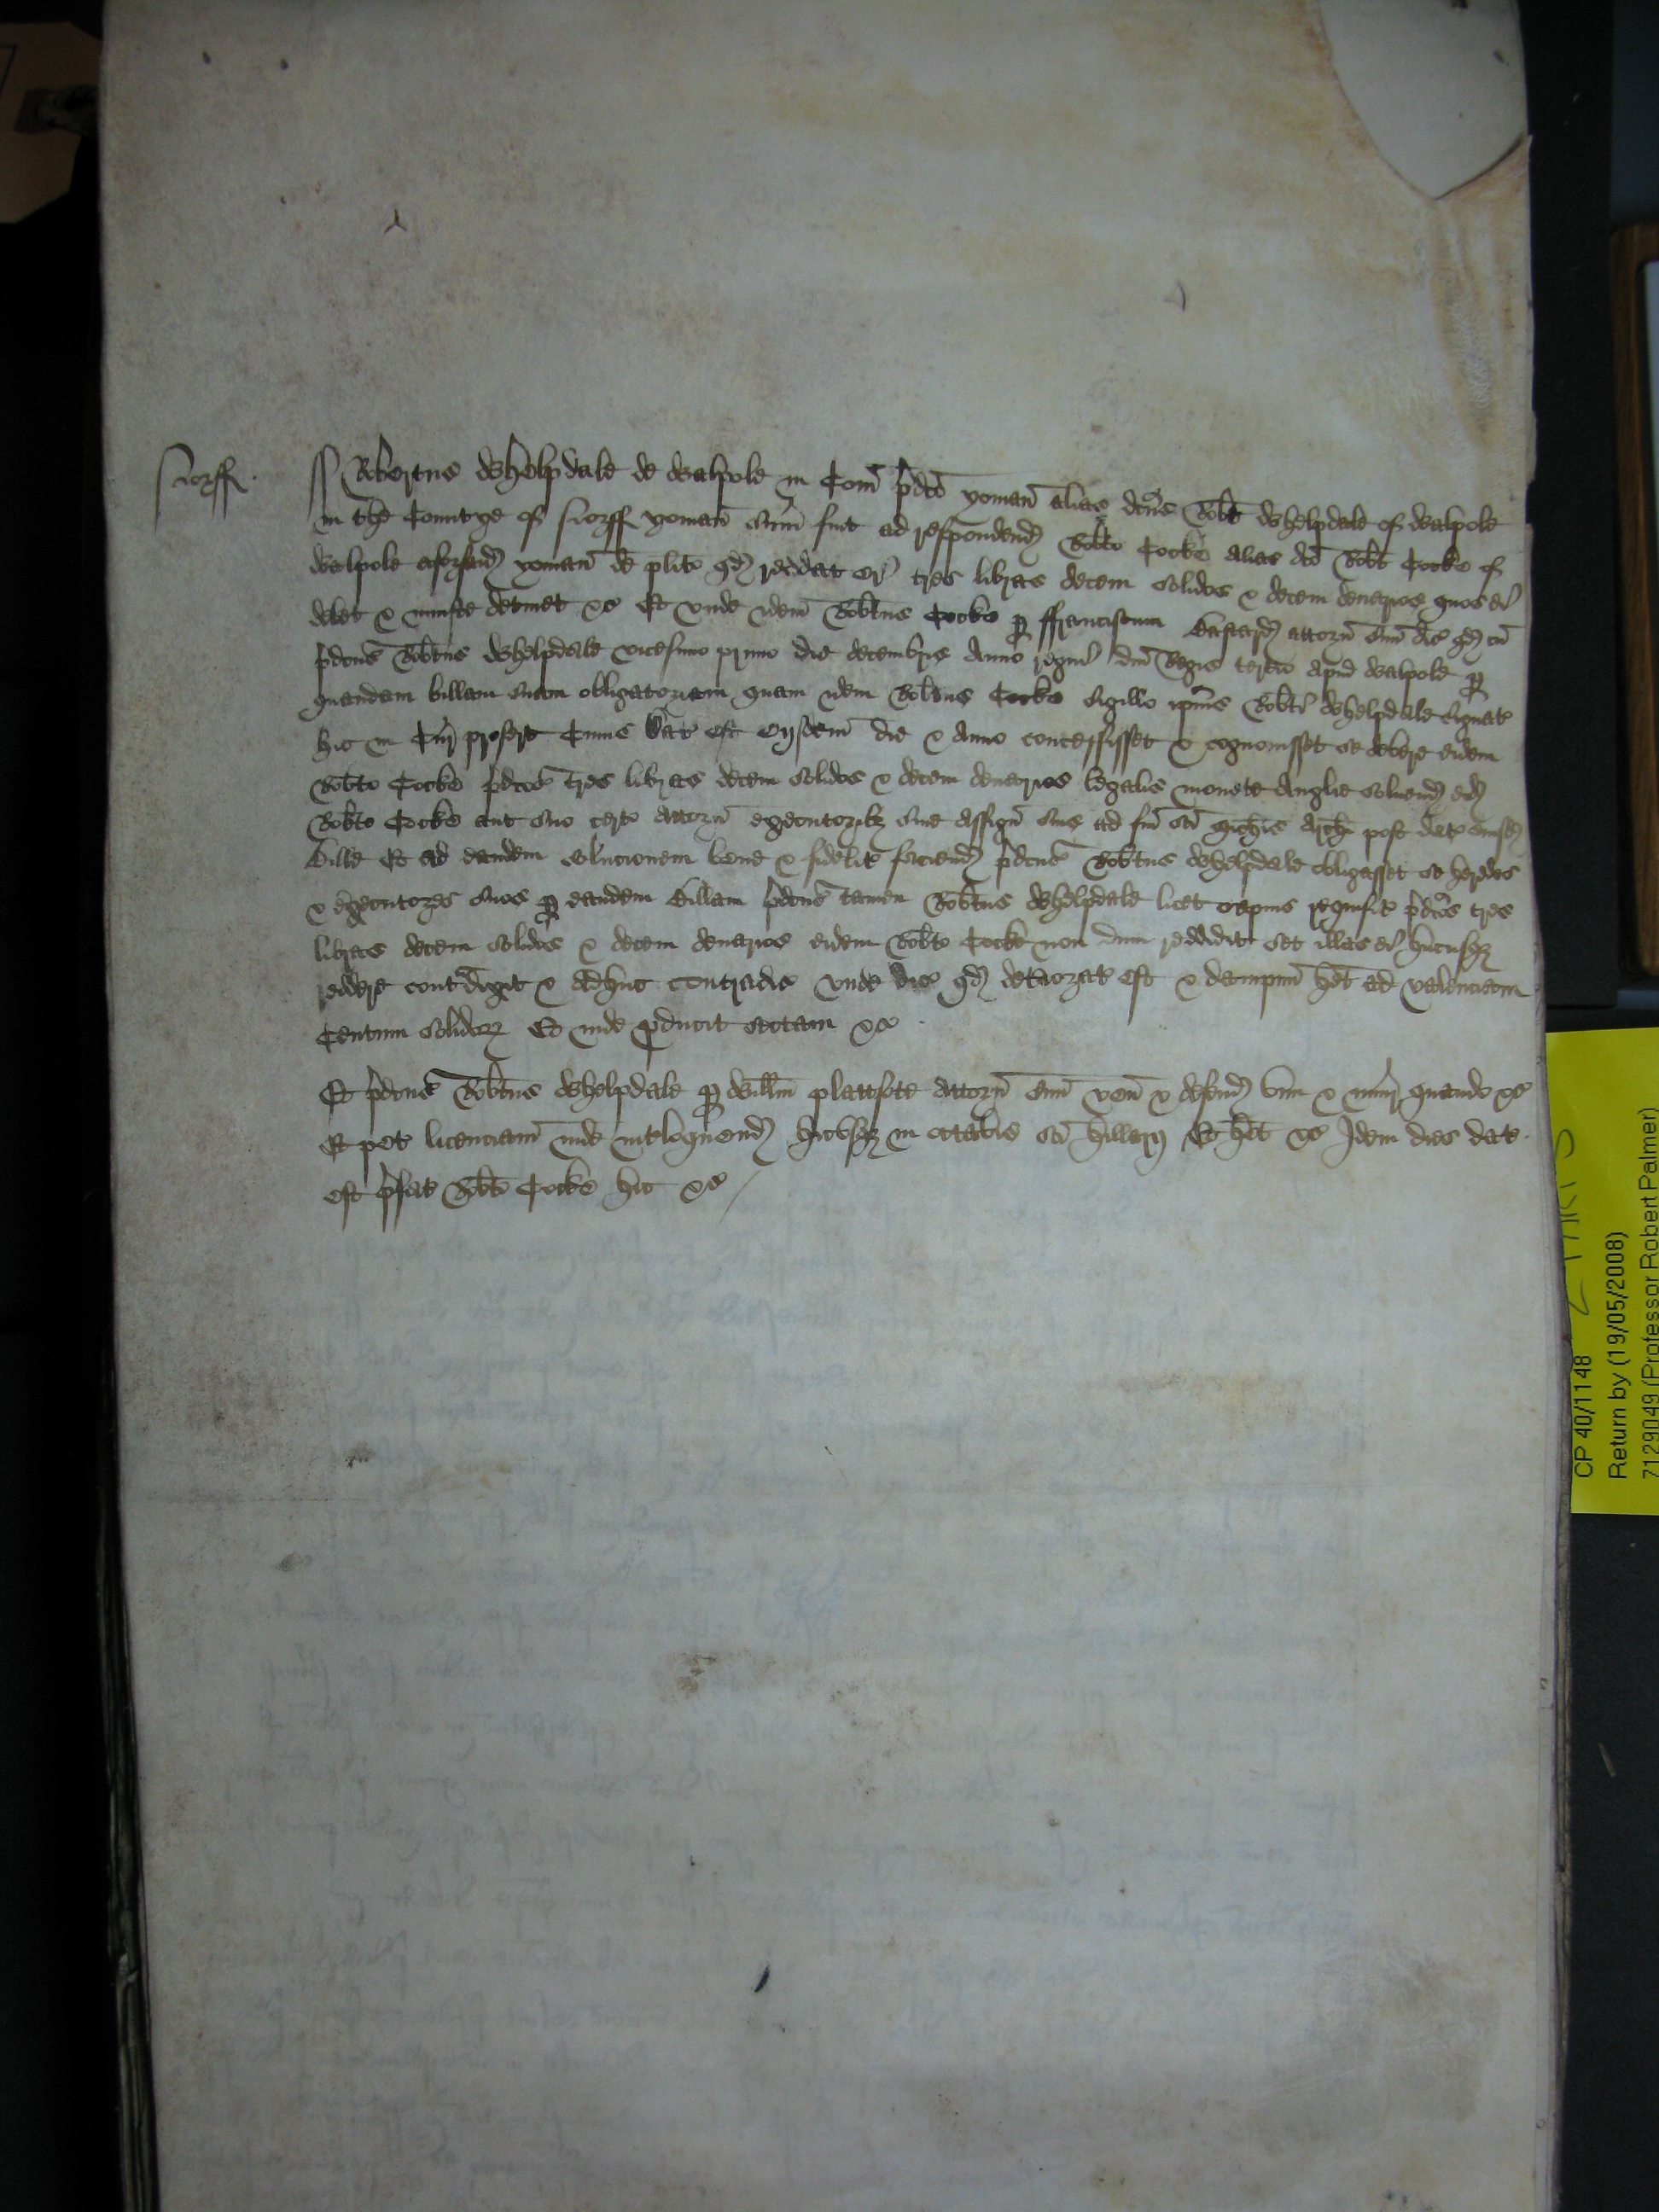 Norff
Robertus Whelpdale de Walpole in Com̄ p̄dc̄o yoman̄ alias dc̄us Rob̄t Whelpdale of Walpole
in the Countye of Norff yoman̄ sum̄ fuit ad respondend Rob̄to Cocke alias dc̄o Rob̄t Cocke of
Walpole aforsaid yoman̄ de pl̄ito qd reddat ei tres libras decem solidos & decem denarios quos ei
debet & iniuste detinet &c Et unde idem Rob̄tus Cocke p ffranciscum attorn̄ suū dic̄ qd cū
p̄dc̄us Rob̄tus Whelpdale vicesimo primo die decembris Anno regni dn̄i Regis tercio apud Walpole p
quandam billam suam obligatoriam quam idem Rob̄tus Cocke sigillo ip̄ius Rob̄ti Whelpdale signat
hic in Cur̄ profert Cuius dat est eisdem die & Anno concessisset & cognovisset se debere eidem
Rob̄to Cocke p̄dc̄as tres libras decem solidos & decem denarios legalis monete Anglie solvend eid
Rob̄to Cocke aut suo certo Attorn̄ executorib3 sive Assign̄ suis ad fm̄ sc̄i Mich̄is Arch̄i post dat eiusd
bille Et ad eandem soluc̄ionem bene & fidelit faciend p̄dc̄us Rob̄tus Whelpdale obligasset se heredes
& executores suos p eandem billam p̄dc̄us tamen Rob̄tus Whelpdale licet sepius requisit p̄dc̄as tres
libras decem solidos & decem denarios eidem Rob̄to Cocke non dum reddidit set illas ei hucusq3
reddere contradixit & adhuc contradic̄ unde dic̄ qd deteriorat est & dampnū h̄et ad valenciam
Centum solidor̄ Et inde p̄ducit sectam &c
Et p̄dc̄us Rob̄tus Whelpdale p Will̄m attorn̄ suū ven̄ & defend vim & iniur̄ quando &c
Et pet licenciam inde int̄loquend hic usq3 in octabis sc̄i Hillarij Et h̄et &c Idem dies dat
est p̄fat Rob̄to Cocke hic &c
CP 40/1148
Return by (19/05/2008)
7129049 (Professor Robert Palmer)